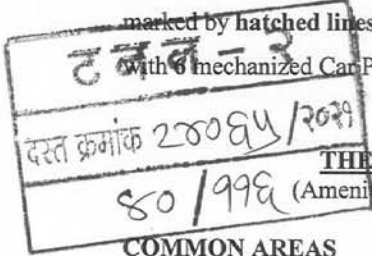 marked by hatched lines
ट न न - ३
with 6 mechanized Car P
दस्त क्रमांक २४०६५/२०२१
THE
४०/११६ (Ameni
COMMON AREAS